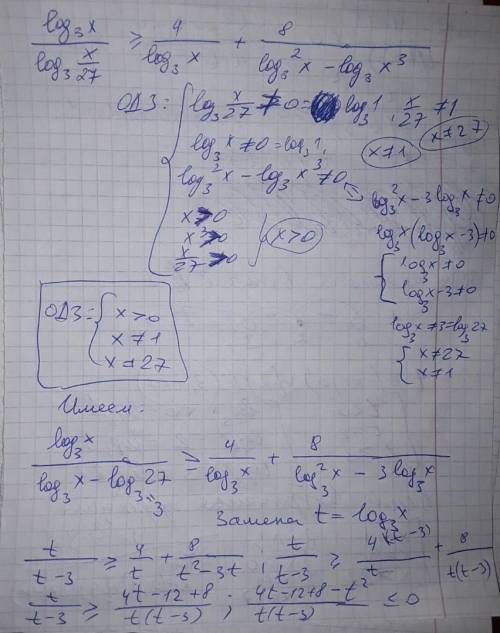 log₃x / log₃(x/27) ≥ 4/log₃x + 8/(log₃²x − log₃x³)
ОДЗ: { log₃(x/27) ≠ 0 = log₃1, x/27 ≠ 1
x ≠ 27
log₃x ≠ 0 = log₃1, x ≠ 1
log₃²x − log₃x³ ≠ 0 ⇔ log₃²x − 3log₃x ≠ 0
log₃x(log₃x − 3) ≠ 0
{ log₃x ≠ 0
log₃x − 3 ≠ 0
log₃x ≠ 3 = log₃27
{ x ≠ 27
x ≠ 1
x > 0
x³ > 0
x/27 > 0 } x > 0
ОДЗ = { x > 0
x ≠ 1
x ≠ 27
Имеем:
log₃x / (log₃x − log₃27) ≥ 4/log₃x + 8/(log₃²x − 3log₃x)
=3
Замена t = log₃x
t/(t−3) ≥ 4/t + 8/(t²−3t) ; t/(t−3) ≥ 4(t−3)/t + 8/(t(t−3))
t/(t−3) ≥ (4t−12+8)/(t(t−3)) ; (4t−12+8−t²)/(t(t−3)) ≤ 0